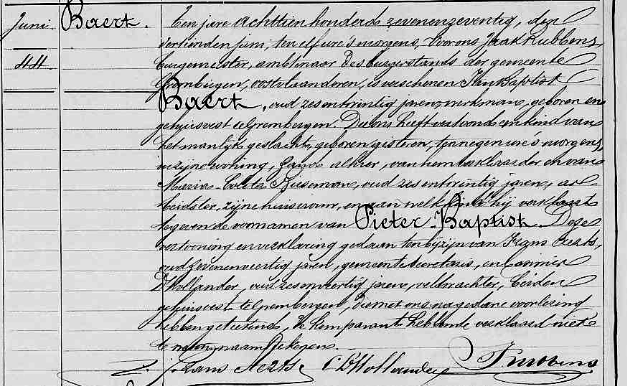 Juni
44
Baert.
Ten jare achttien honderd zevenenzeventig, den
veertienden juni, ten elf ure 's morgens, voor ons Jaak Rubbens
burgemeester, ambtenaar des burgerstands der gemeente
Grembergen, oostvlaanderen, is verschenen Jan Baptist
Baert, oud zesentwintig jaren, werkman, geboren en
gehuisvest te Grembergen. Die ons heeft vertoond een kind van
het manlijk geslacht, geboren gisteren, ten negen ure 's morgens
in zijne woning, alhier, van hem verklaarder en van
Maria Coleta oud zesentwintig jaren, ar-
beidster, zijne huisvrouw, en aan welk kind hij verklaart
te geven de voornamen van Pieter-Baptist. Deze
vertooning en verklaring gedaan ten bijzijn van Frans Aerts,
oud zevenenveertig jaren, gemeente secretaris, en
D'Hollander, oud jaren, veldwachter, beiden
gehuisvest te Grembergen, die met ons na gedane voorlezing
hebben geteekend, de komparant hebbende verklaard niet
te
Frans Aerts C. D'Hollander J. Rubbens